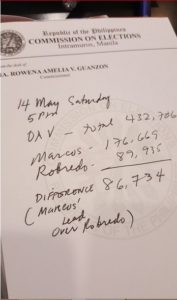 Republic of the Philippines
COMMISSION ON ELECTIONS
Intramuros, Manila
MA. ROWENA AMELIA V. GUANZON
Commissioner
14 May Saturday
5 PM
OAV - Total 432,706
Marcos - 176,669
Robredo - 89,935
DIFFERENCE 86,734
(Marcos'
Lead
Over Robredo)